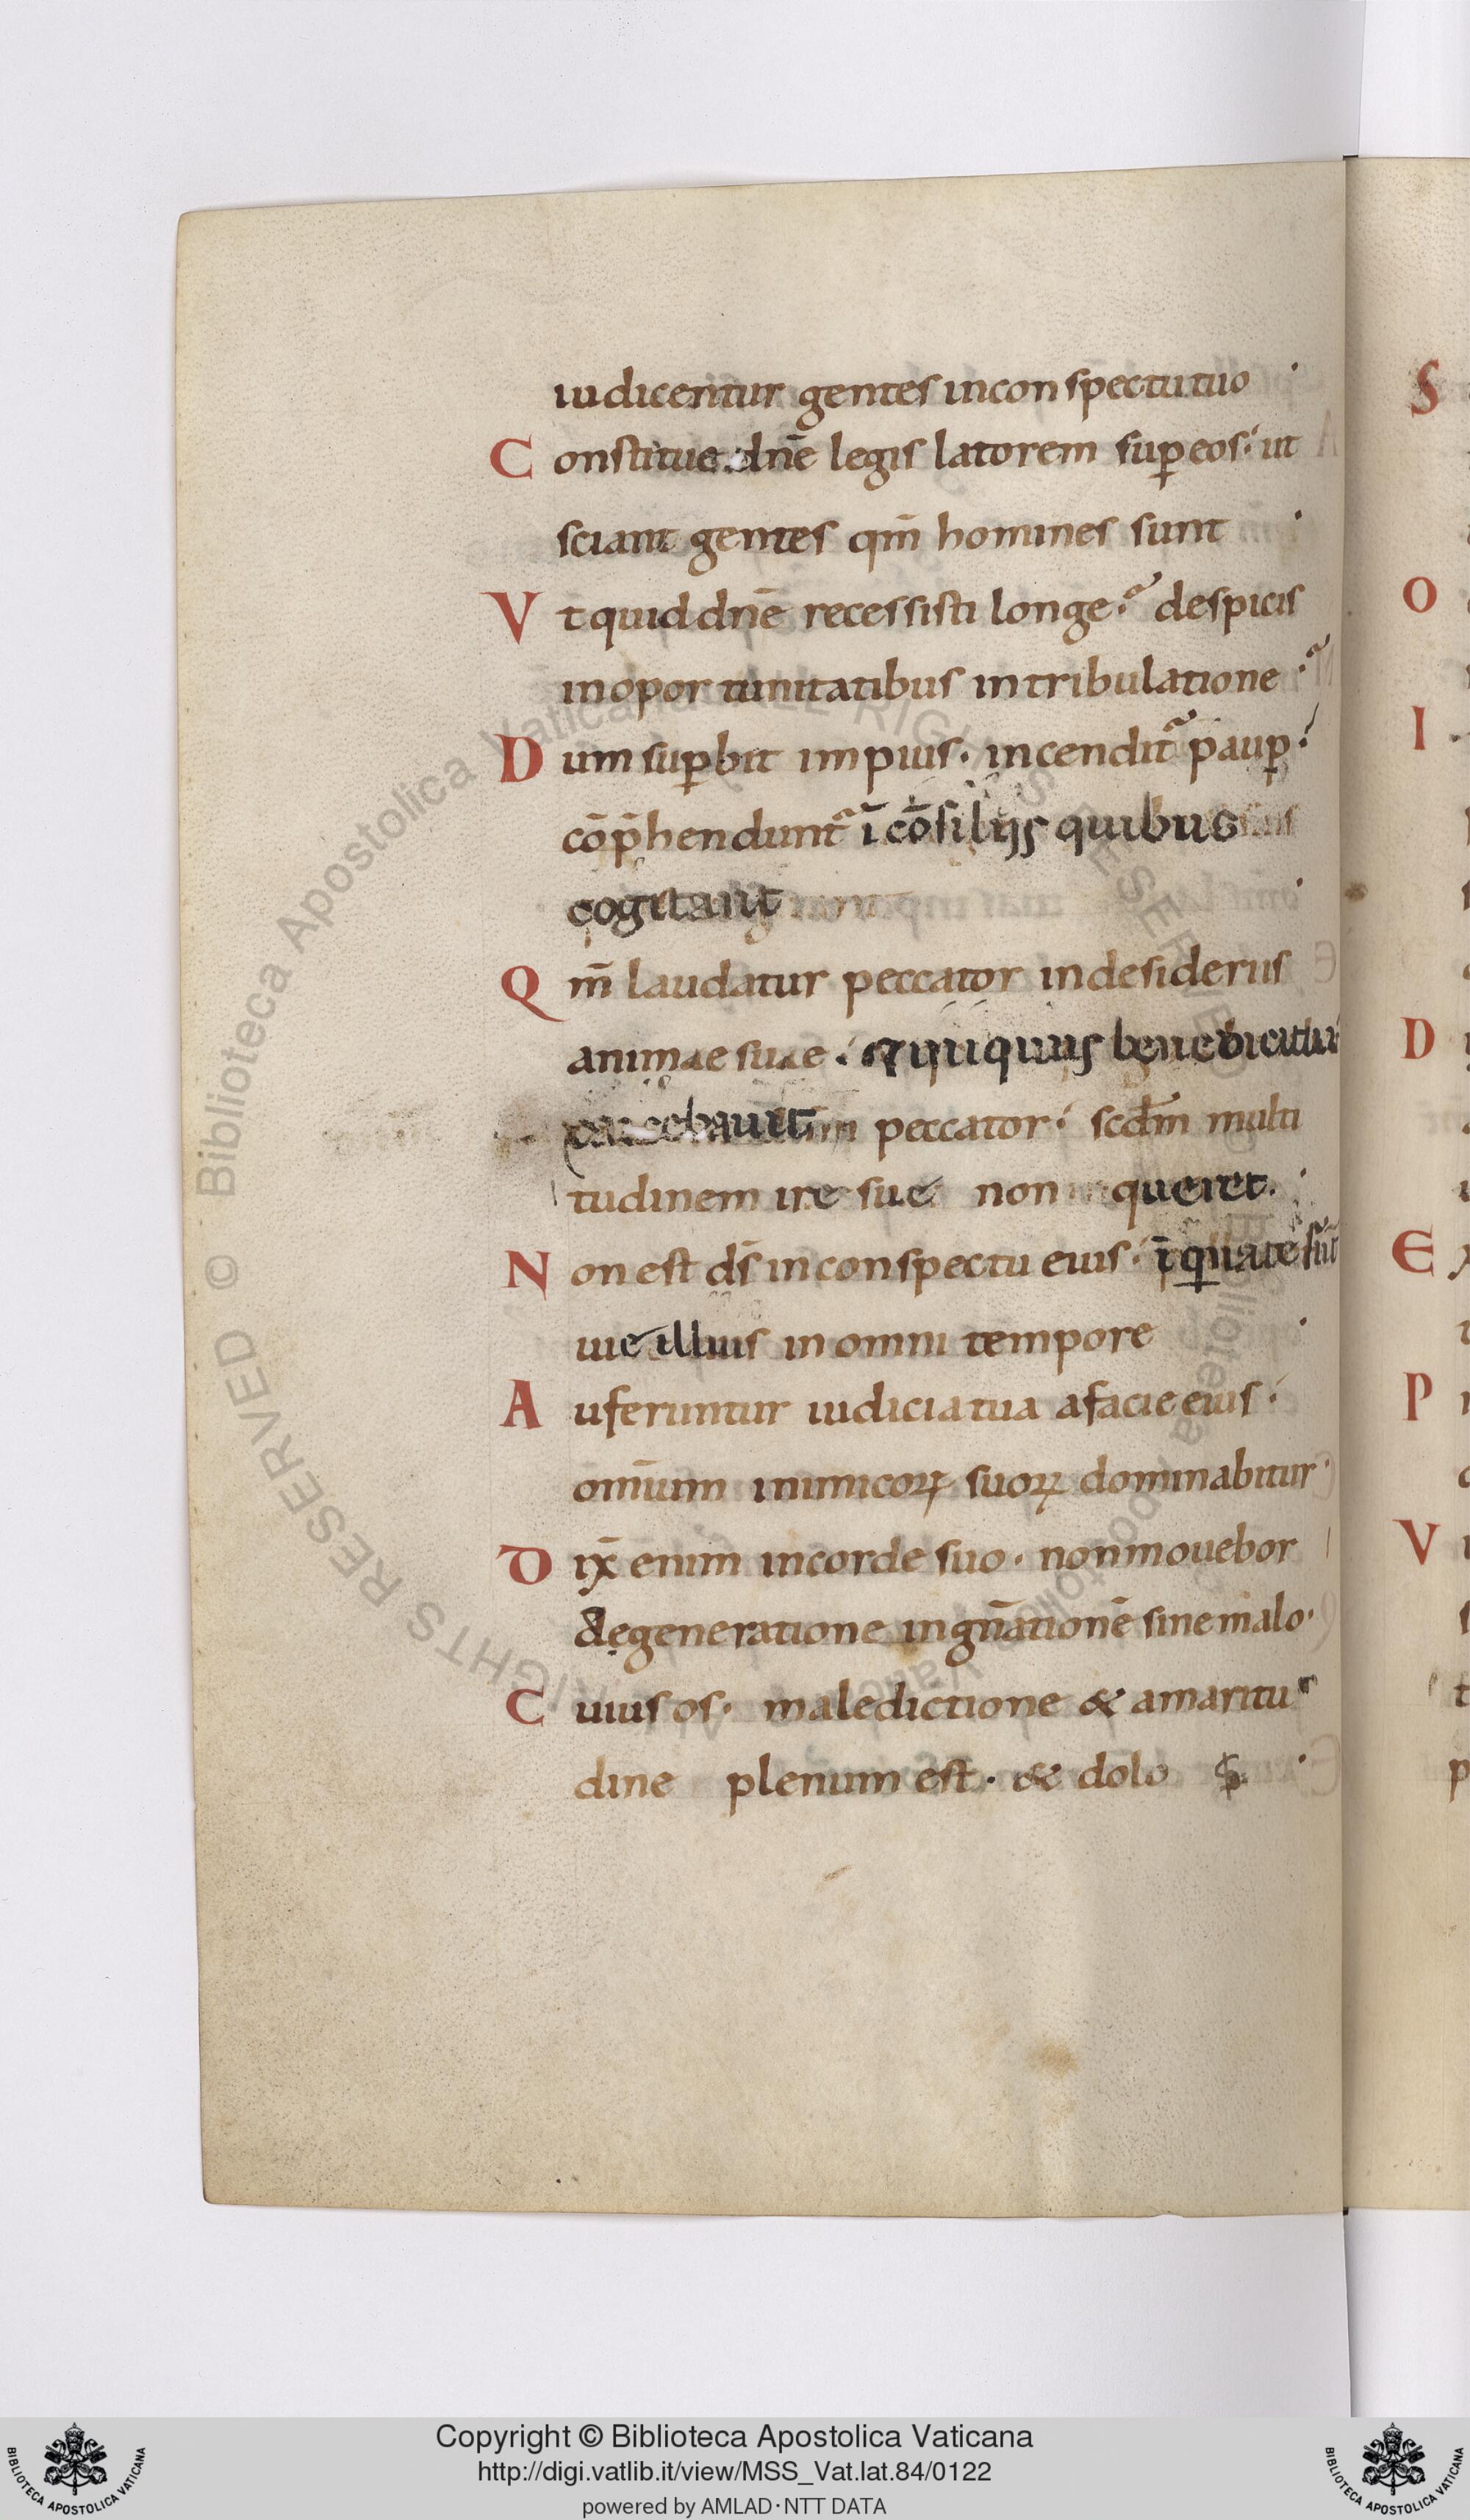 iudicentur gentes inconspectutuo
C onstitue dnē legis latorem sup̱eos· ut
sciant gentes qm̄ homines sunt
V tquiddnē recessisti longe· despicis
inoportunitatibus intribulatione
D umsup̱bit impius· incendit̄ paup̱·
cōp̄hendunt̄ ī cōsilijs quibus
cogitant
Q m̄ laudatur peccator indesideriis
animae suae· & iniquus benedicitur
peccator· scdm̄ multi
tudinem ire sue non queret·
N onest dS̄ inconspectu eius· īquīate sūt
uie illius inomni tempore
A uferuntur iudiciatua afacieeius·
omīum inimicoꝝ suoꝝ dominabitur
D ix̄ enim incorde suo· nonmouebor
Aegeneratione ingn̄ationē sinemalo·
C uius os· maledictione & amaritu
dine plenum est· & dolo
S
O
I
D
E
P
V
© Biblioteca Apostolica Vaticana ALL RIGHTS RESERVED
Copyright © Biblioteca Apostolica Vaticana
http://digi.vatlib.it/view/MSS_Vat.lat.84/0122
powered by AMLAD·NTT DATA
BIBLIOTECA APOSTOLICA VATICANA
BIBLIOTECA APOSTOLICA VATICANA